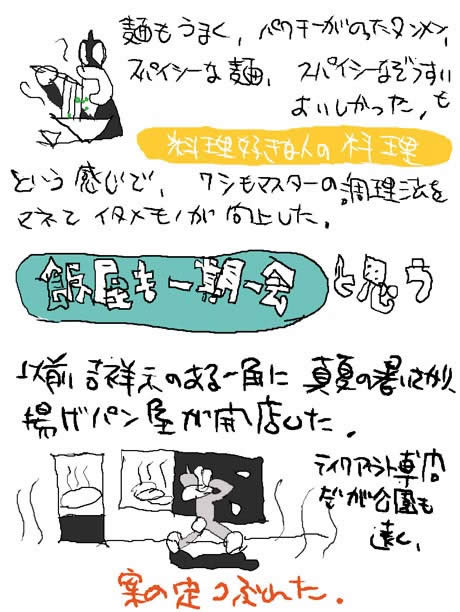 麺もうまく、パクチーがのったタンメン、
スパイシーな麺、スパイシーなぞうすい
おいしかった、も
料理好きな人の料理
という感じで、ワシもマスターの調理法を
マネてイタメモノが向上した。
飯屋も一期一会と思う
以前吉祥寺のある一角に真夏の暑いさかり
揚げパン屋が開店した。
テイクアウト専店
だが公園も
遠く、
案の定つぶれた。